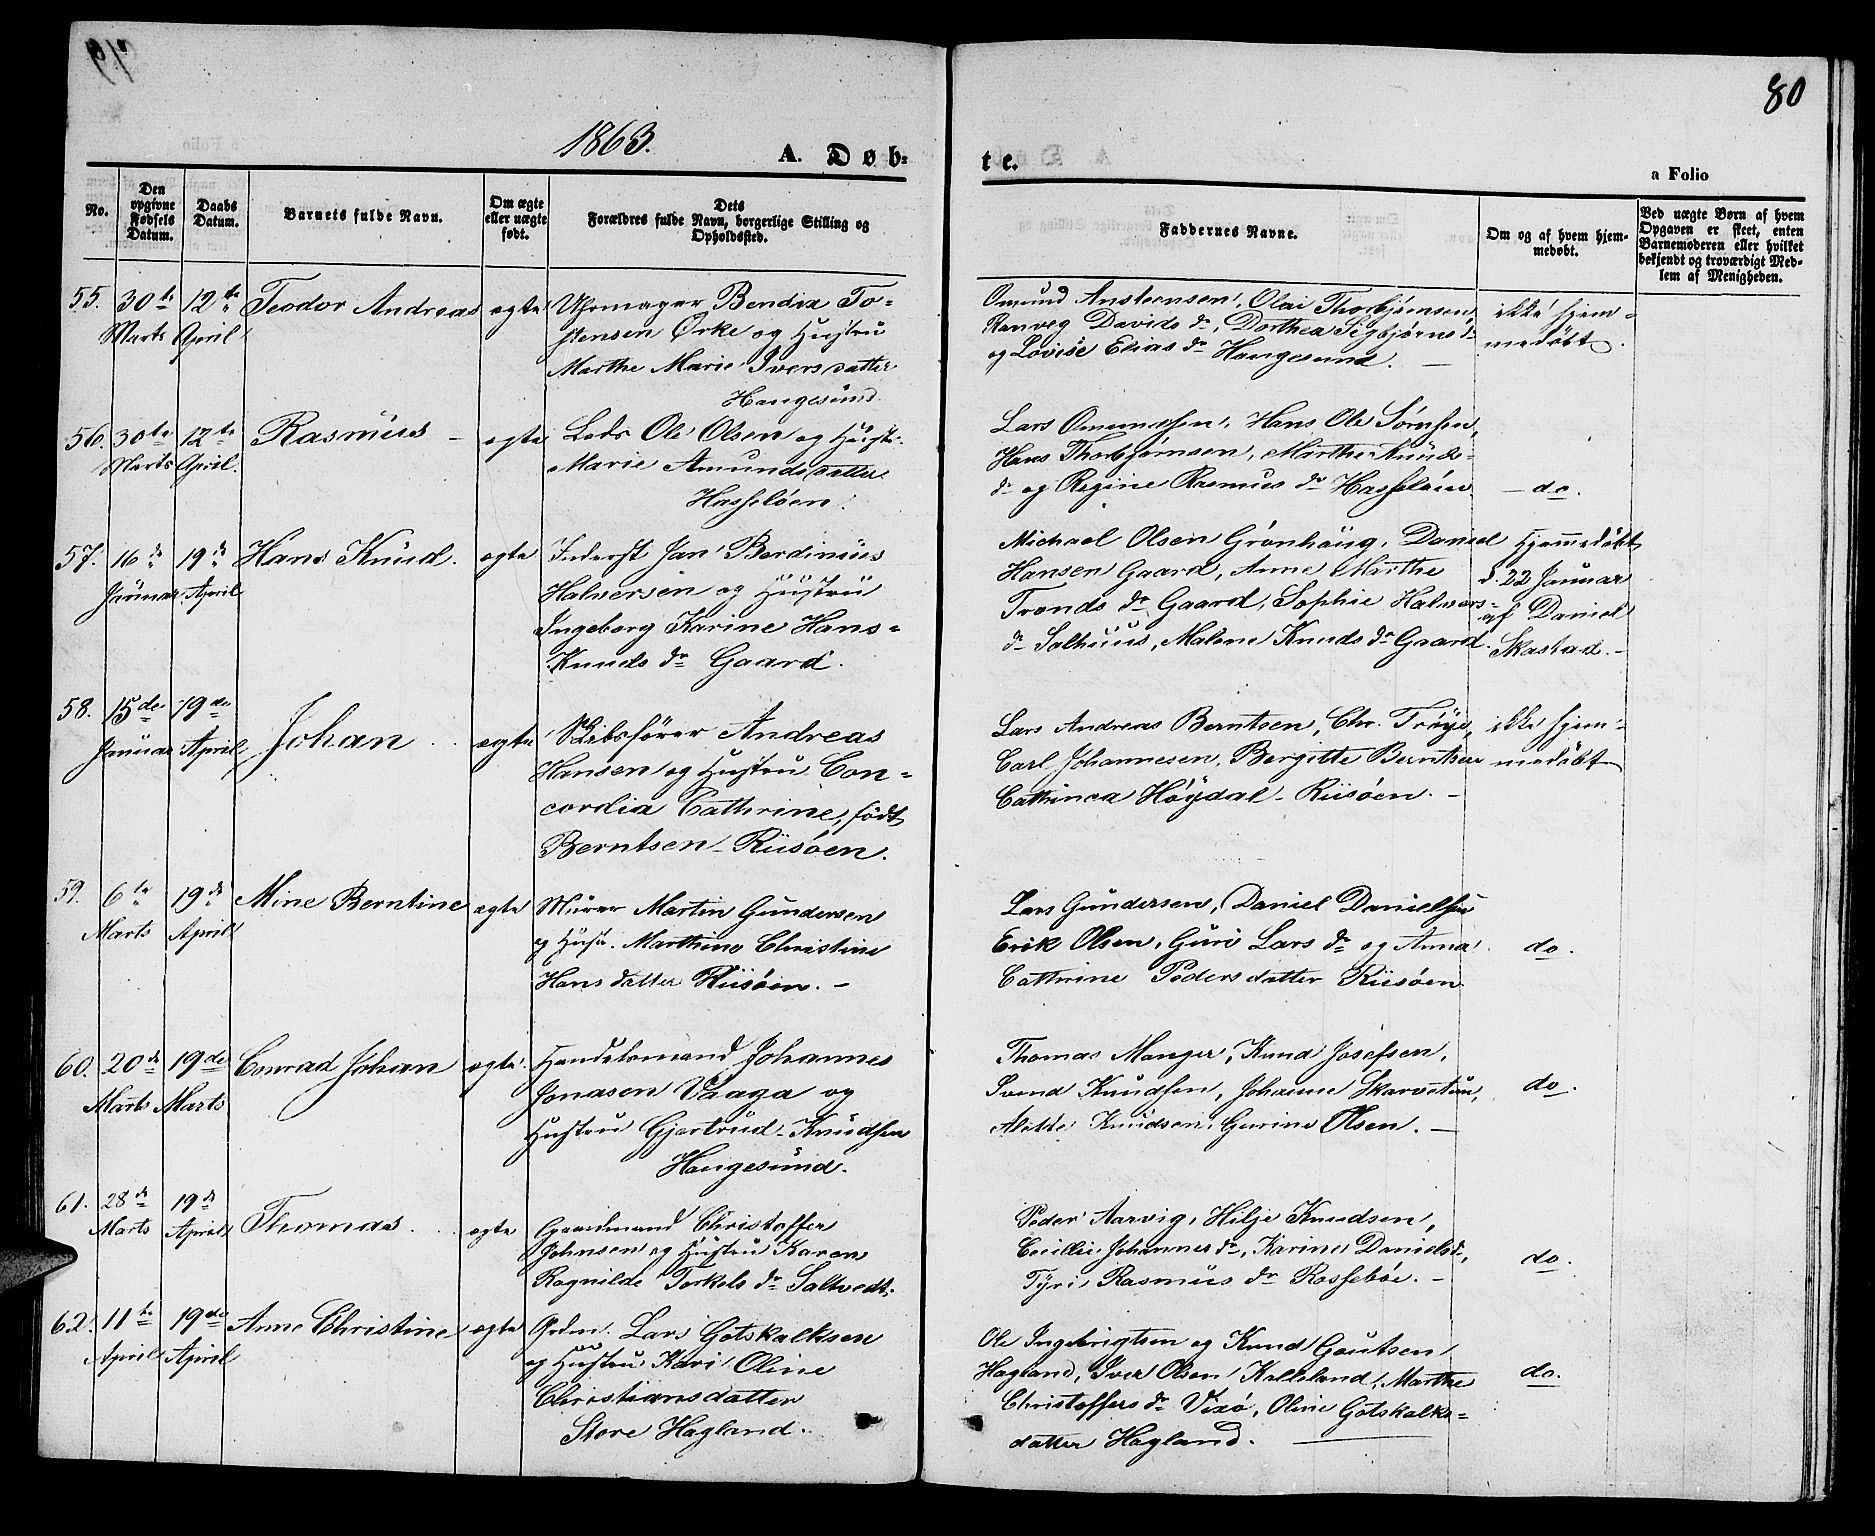 80
1863.
A. Døb-
te.
a Folio
No.
Den opgivne Fødsels Datum.
Daabs Datum.
Barnets fulde Navn.
Om ægte eller uægte født.
Dets Forældres fulde Navn, borgerlige Stilling og Opholdssted.
Faddernes Navne.
Om og af hvem hjem-
medøbt.
Ved uægte Børn af hvem
Opgaven er skeet, enten
Barnemoderen eller hvilket
bekjendt og troværdigt Med-
lem af Menigheden.
55. 30te Marts 12te April Teodor Andreas ægte
Uhrmager Bendix To-
stensen Ørke og Hustru
Marthe Marie Iversdatter
Haugesund.
Omund Anstensen, Olai Thorbjørnsen,
Ranveg Davids dr, Dorthea Sigbjørns dr
og Lovise Elias dr Haugesund. —
ikke hjem-
medøbt.
56. 30te Marts 12te April. Rasmus — ægte
Lods Ole Olsen og Hustr.
Marie Amundsdatter
Hasseløen.
Lars Omundsen, Hans Ole Sørnsen,
Hans Thorbjørnsen, Marthe Aunds-
dr og Regine Rasmus dr Hasseløen
— do.
57. 16de Januar 19de April Hans Knud. ægte
Inderst Jan Berdinius
Halversen og Hustru
Ingeborg Karine Hans-
Knuds dr Gaard.
Michael Olsen Grønhaug, Daniel
Hansen Gaard, Anne Marthe
Tronds dr Gaard, Sophie Halvors-
dr Salhuus, Malene Knuds dr Gaard.
Hjemmedøbt
d. 22 Januar
af Daniel
Skastad. —
58. 15de Januar 19de April Johan ægte
Skibsfører Andreas
Hansen og Hustru Con-
cordia Cathrine, født
Berntsen — Risøen.
Lars Andreas Berntsen, Chr. Trøye,
Carl Johannesen, Bergitte Berntsen
Cathinca Høydal — Risøen. —
ikke hjem-
medøbt
59. 6te Marts 19de April Mine Berntine ægte
Murer Martin Gundersen
og Hustr. Marthine Christine
Hansdatter Risøen. —
Lars Gundersen, Daniel Danielsen
Erik Olsen, Guri Lars dr og Anna
Cathrine Pedersdatter Risøen.
do.
60. 20de Marts 19de Marts Conrad Johan ægte
Handelsmand Johannes
Jonasen Vaaga og
Hustru Gjertrud Knudsen
Haugesund.
Thomas Manger, Knud Josefsen,
Svend Knudsen, Johanne Skarvetun,
Alette Knudsen, Gurine Olsen. —
do.
61. 28de Marts 19de April Thomas ægte
Gaardmand Christoffer
Johnsen og Hustru Karen
Ragnilde Torkels dr Saltvedt.
Peder Aarvig, Hilje Knudsen,
Cecillie Johannes dr, Karine Daniels dr,
Tyri Rasmus dr Rossebøe. —
do.
62. 11te April 19de April Anne Christine ægte
Grdm. Lars Gotskalksen
og Hustru Kari Oline
Christiansdatter
Store Hagland.
Ole Ingebrigtsen og Knud Gautsen
Hagland, Iver Olsen Kalleland, Marthe
Christoffers dr Vixø, Oline Gotskalks-
datter Hagland.
do.